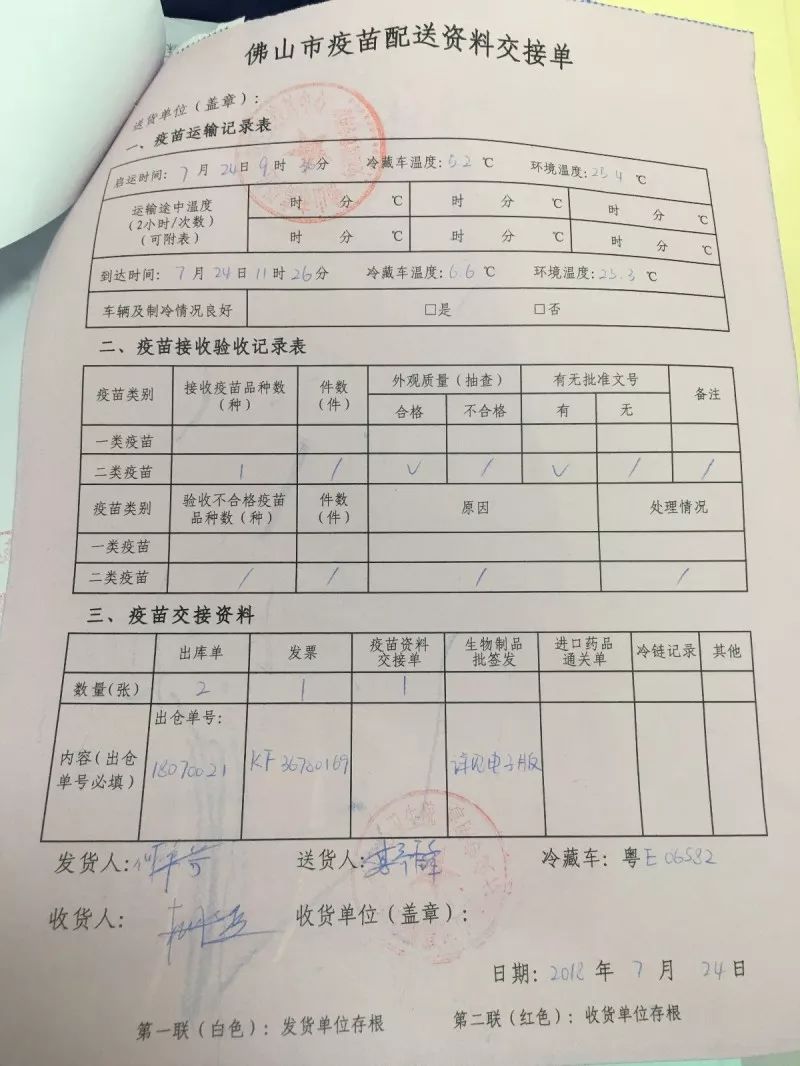 佛山市疫苗配送资料交接单
送货单位（盖章）：
一、疫苗运输记录表
启运时间：7月24日9时36分 冷藏车温度：5.2℃ 环境温度：25.4℃
运输途中温度（2小时/次数）（可附表） 时 分 ℃ 时 分 ℃ 时 分 ℃
时 分 ℃ 时 分 ℃ 时 分 ℃
到达时间：7月24日11时26分 冷藏车温度：6.6℃ 环境温度：25.3℃
车辆及制冷情况良好 □是 □否
二、疫苗接收验收记录表
疫苗类别 接收疫苗品种数（种） 件数（件） 外观质量（抽查） 有无批准文号 备注
合格 不合格 有 无
一类疫苗
二类疫苗 1 / √ / √ / /
疫苗类别 验收不合格疫苗品种数（种） 件数（件） 原因 处理情况
一类疫苗
二类疫苗 / / / /
三、疫苗交接资料
出库单 发票 疫苗资料交接单 生物制品批签发 进口药品通关单 冷链记录 其他
数量(张) 2 1 1
内容(出仓单号必填) 出仓单号：
18070021 KF36780169 详见电子版
发货人： 送货人： 冷藏车：粤E06582
收货人： 收货单位（盖章）：
日期：2018年7月24日
第一联（白色）：发货单位存根 第二联（红色）：收货单位存根